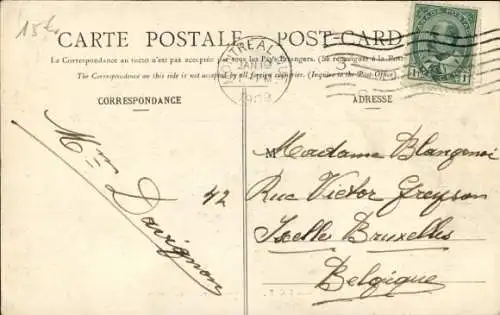 15 fr
CARTE POSTALE — POST-CARD
La Correspondance au verso n'est pas acceptée par tous les Pays Etrangers. (Se renseigner à la Poste)
The Correspondence on this side is not accepted by all foreign countries. (Inquire to the Post-Office)
MONTREAL
JAN 19
1909
CORRESPONDANCE
ADRESSE
Mme Davignon
M Madame Blangenoi
42 Rue Victor Greyson
Ixelles Bruxelles
Belgique